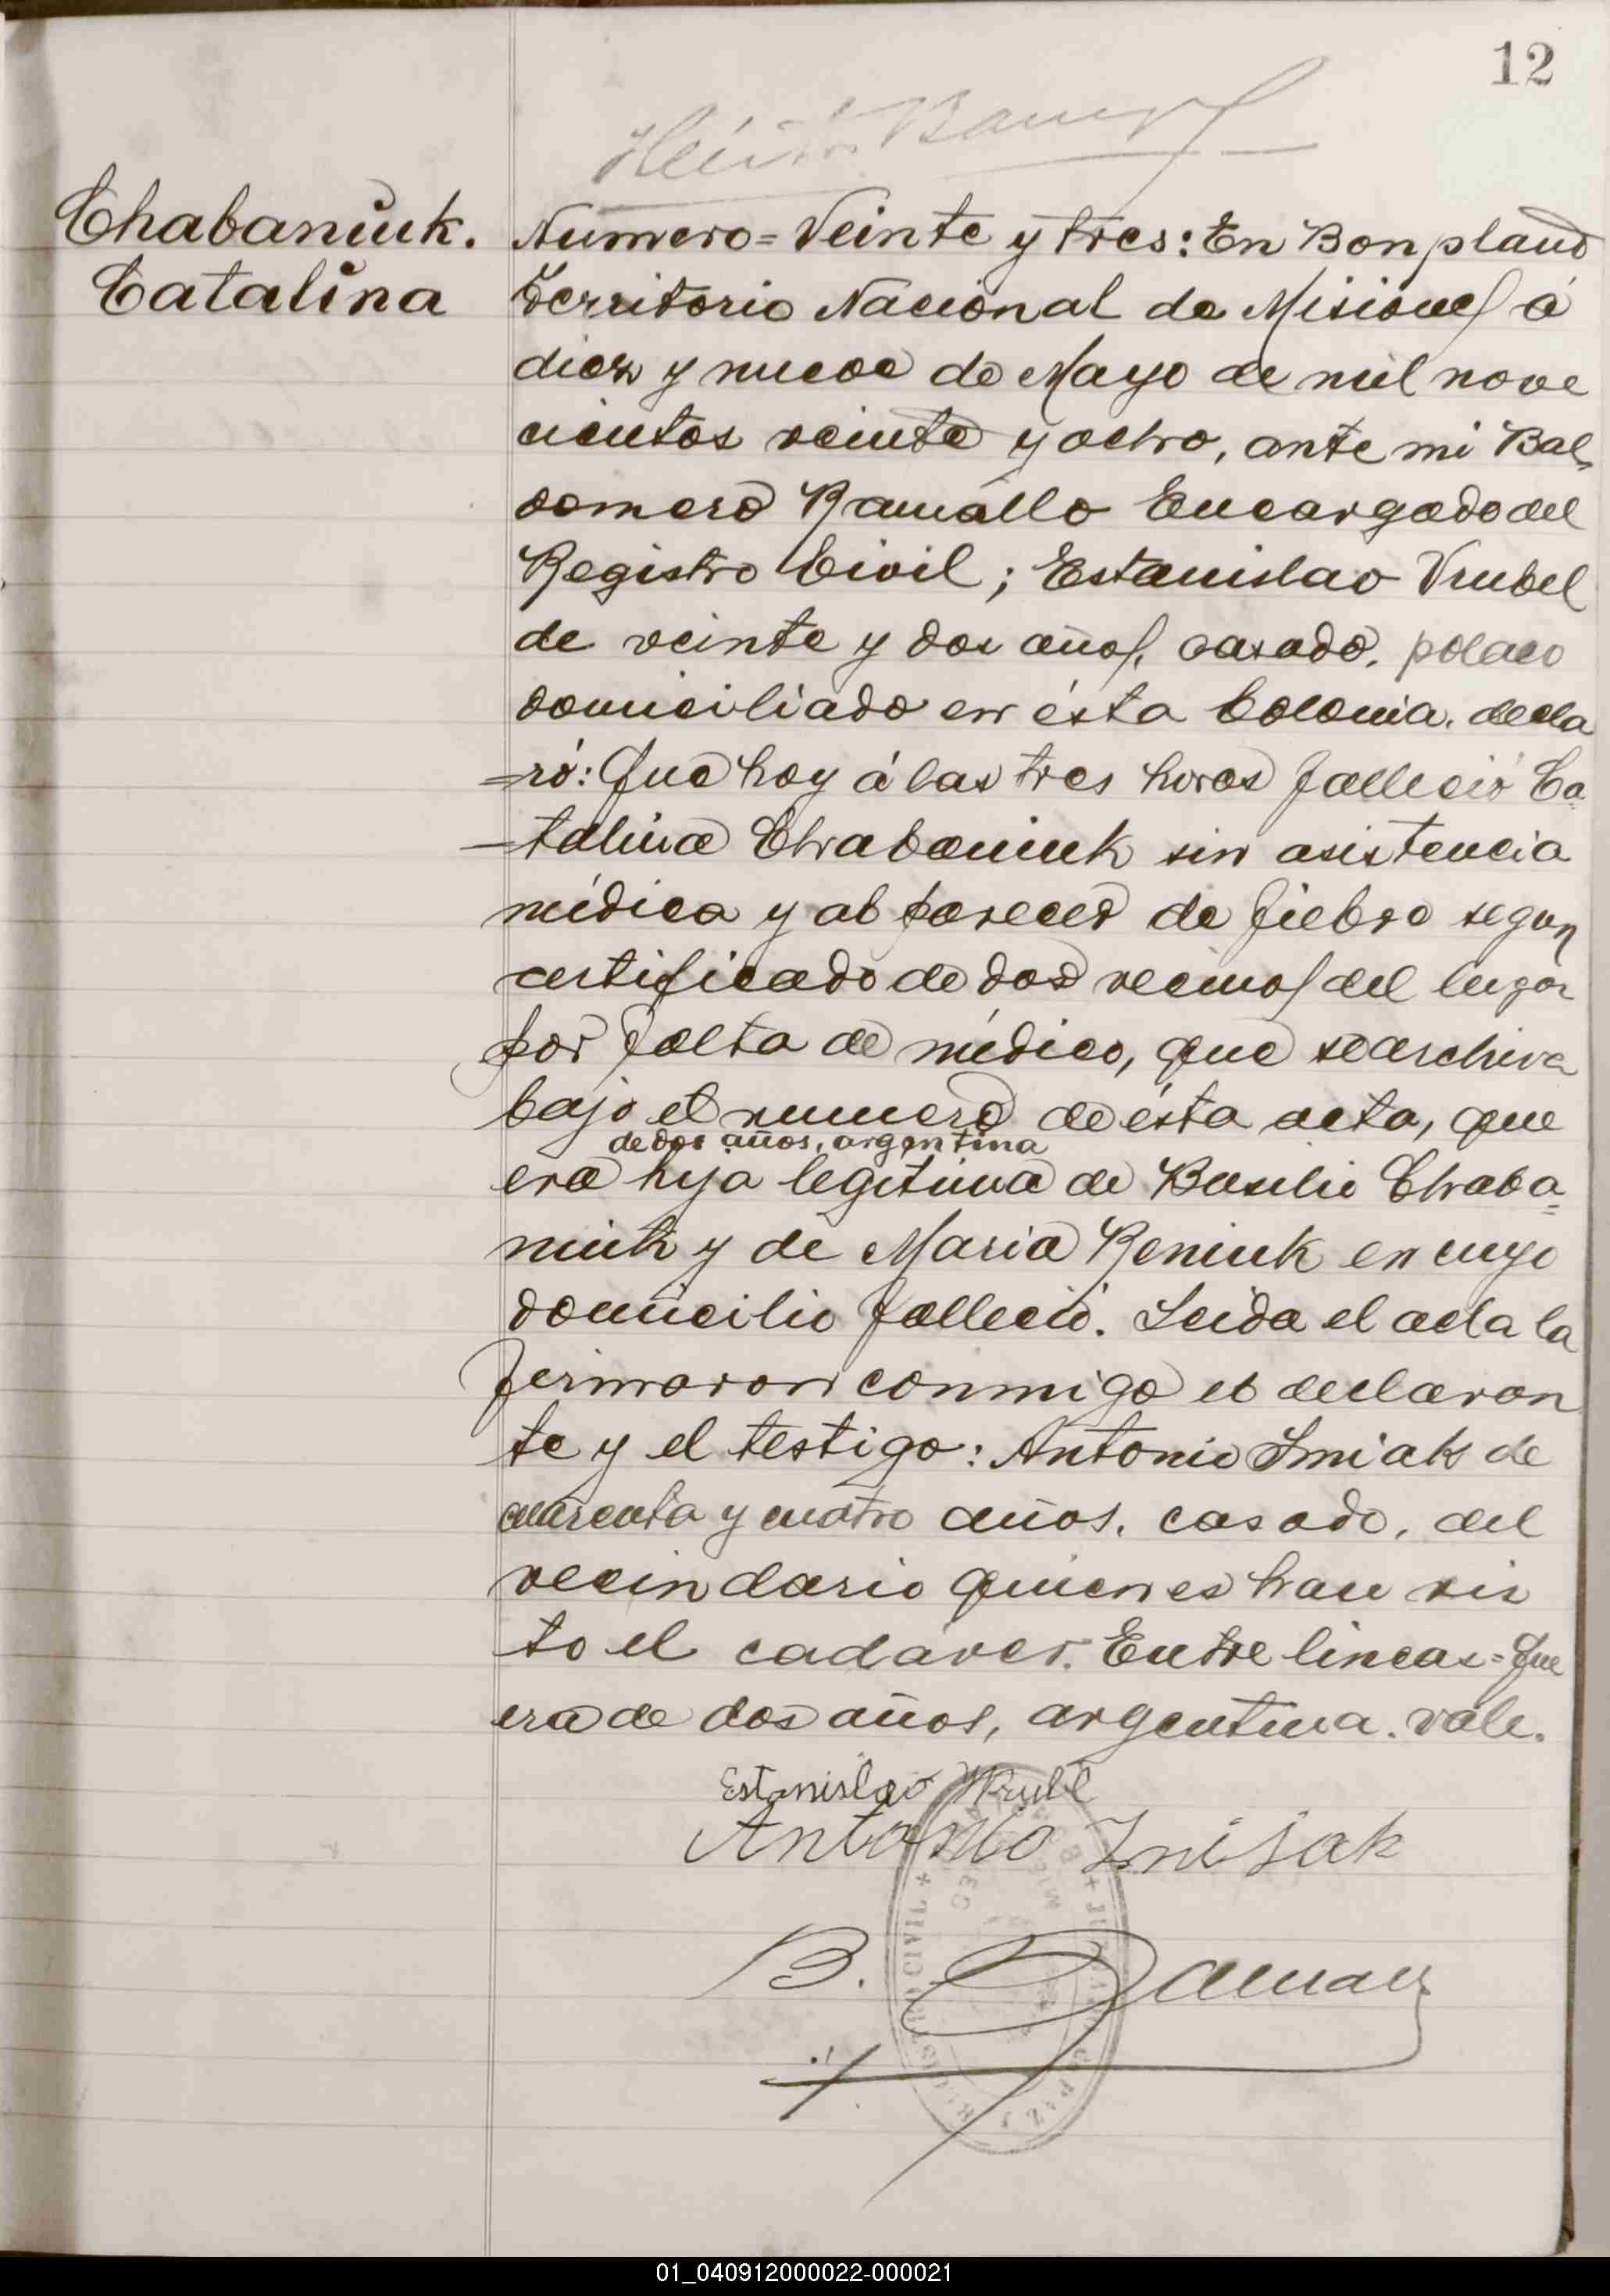 12
Chabaniuk.
Catalina
Numero = Veinte y tres: En Bonpland
Territorio Nacional de Misiones á
diez y nueve de Mayo de mil nove
cientos veinte y ocho, ante mi Bal
domero Ramallo Encargado del
Registro Civil; Estanislao Vrubel
de veinte y dos años, casado, polaco
domiciliado en ésta Colonia, decla
=ró: Que hoy á las tres horas falleció Ca=
-talina Chabaniuk sin asistencia
médica y al parecer de fiebre segun
certificado de dos vecinos del lugar
por falta de médico, que se archiva
bajo el numero de ésta acta, que
de dos años, argentina
era hija legitima de Basilio Chaba=
niuk y de Maria Reniuk en cuyo
domicilio falleció. Leida el acta la
firmaron conmigo el declaran
te y el testigo: Antonio Smiak de
cuarenta y cuatro años, casado, del
vecindario quienes han vis
to el cadaver. Entre lineas = que
era de dos años, argentina. vale.
Estanislao Wrubel
Antonio Zmijak
B.
REGISTRO CIVIL + JUZGADO DE PAZ
01_040912000022-000021